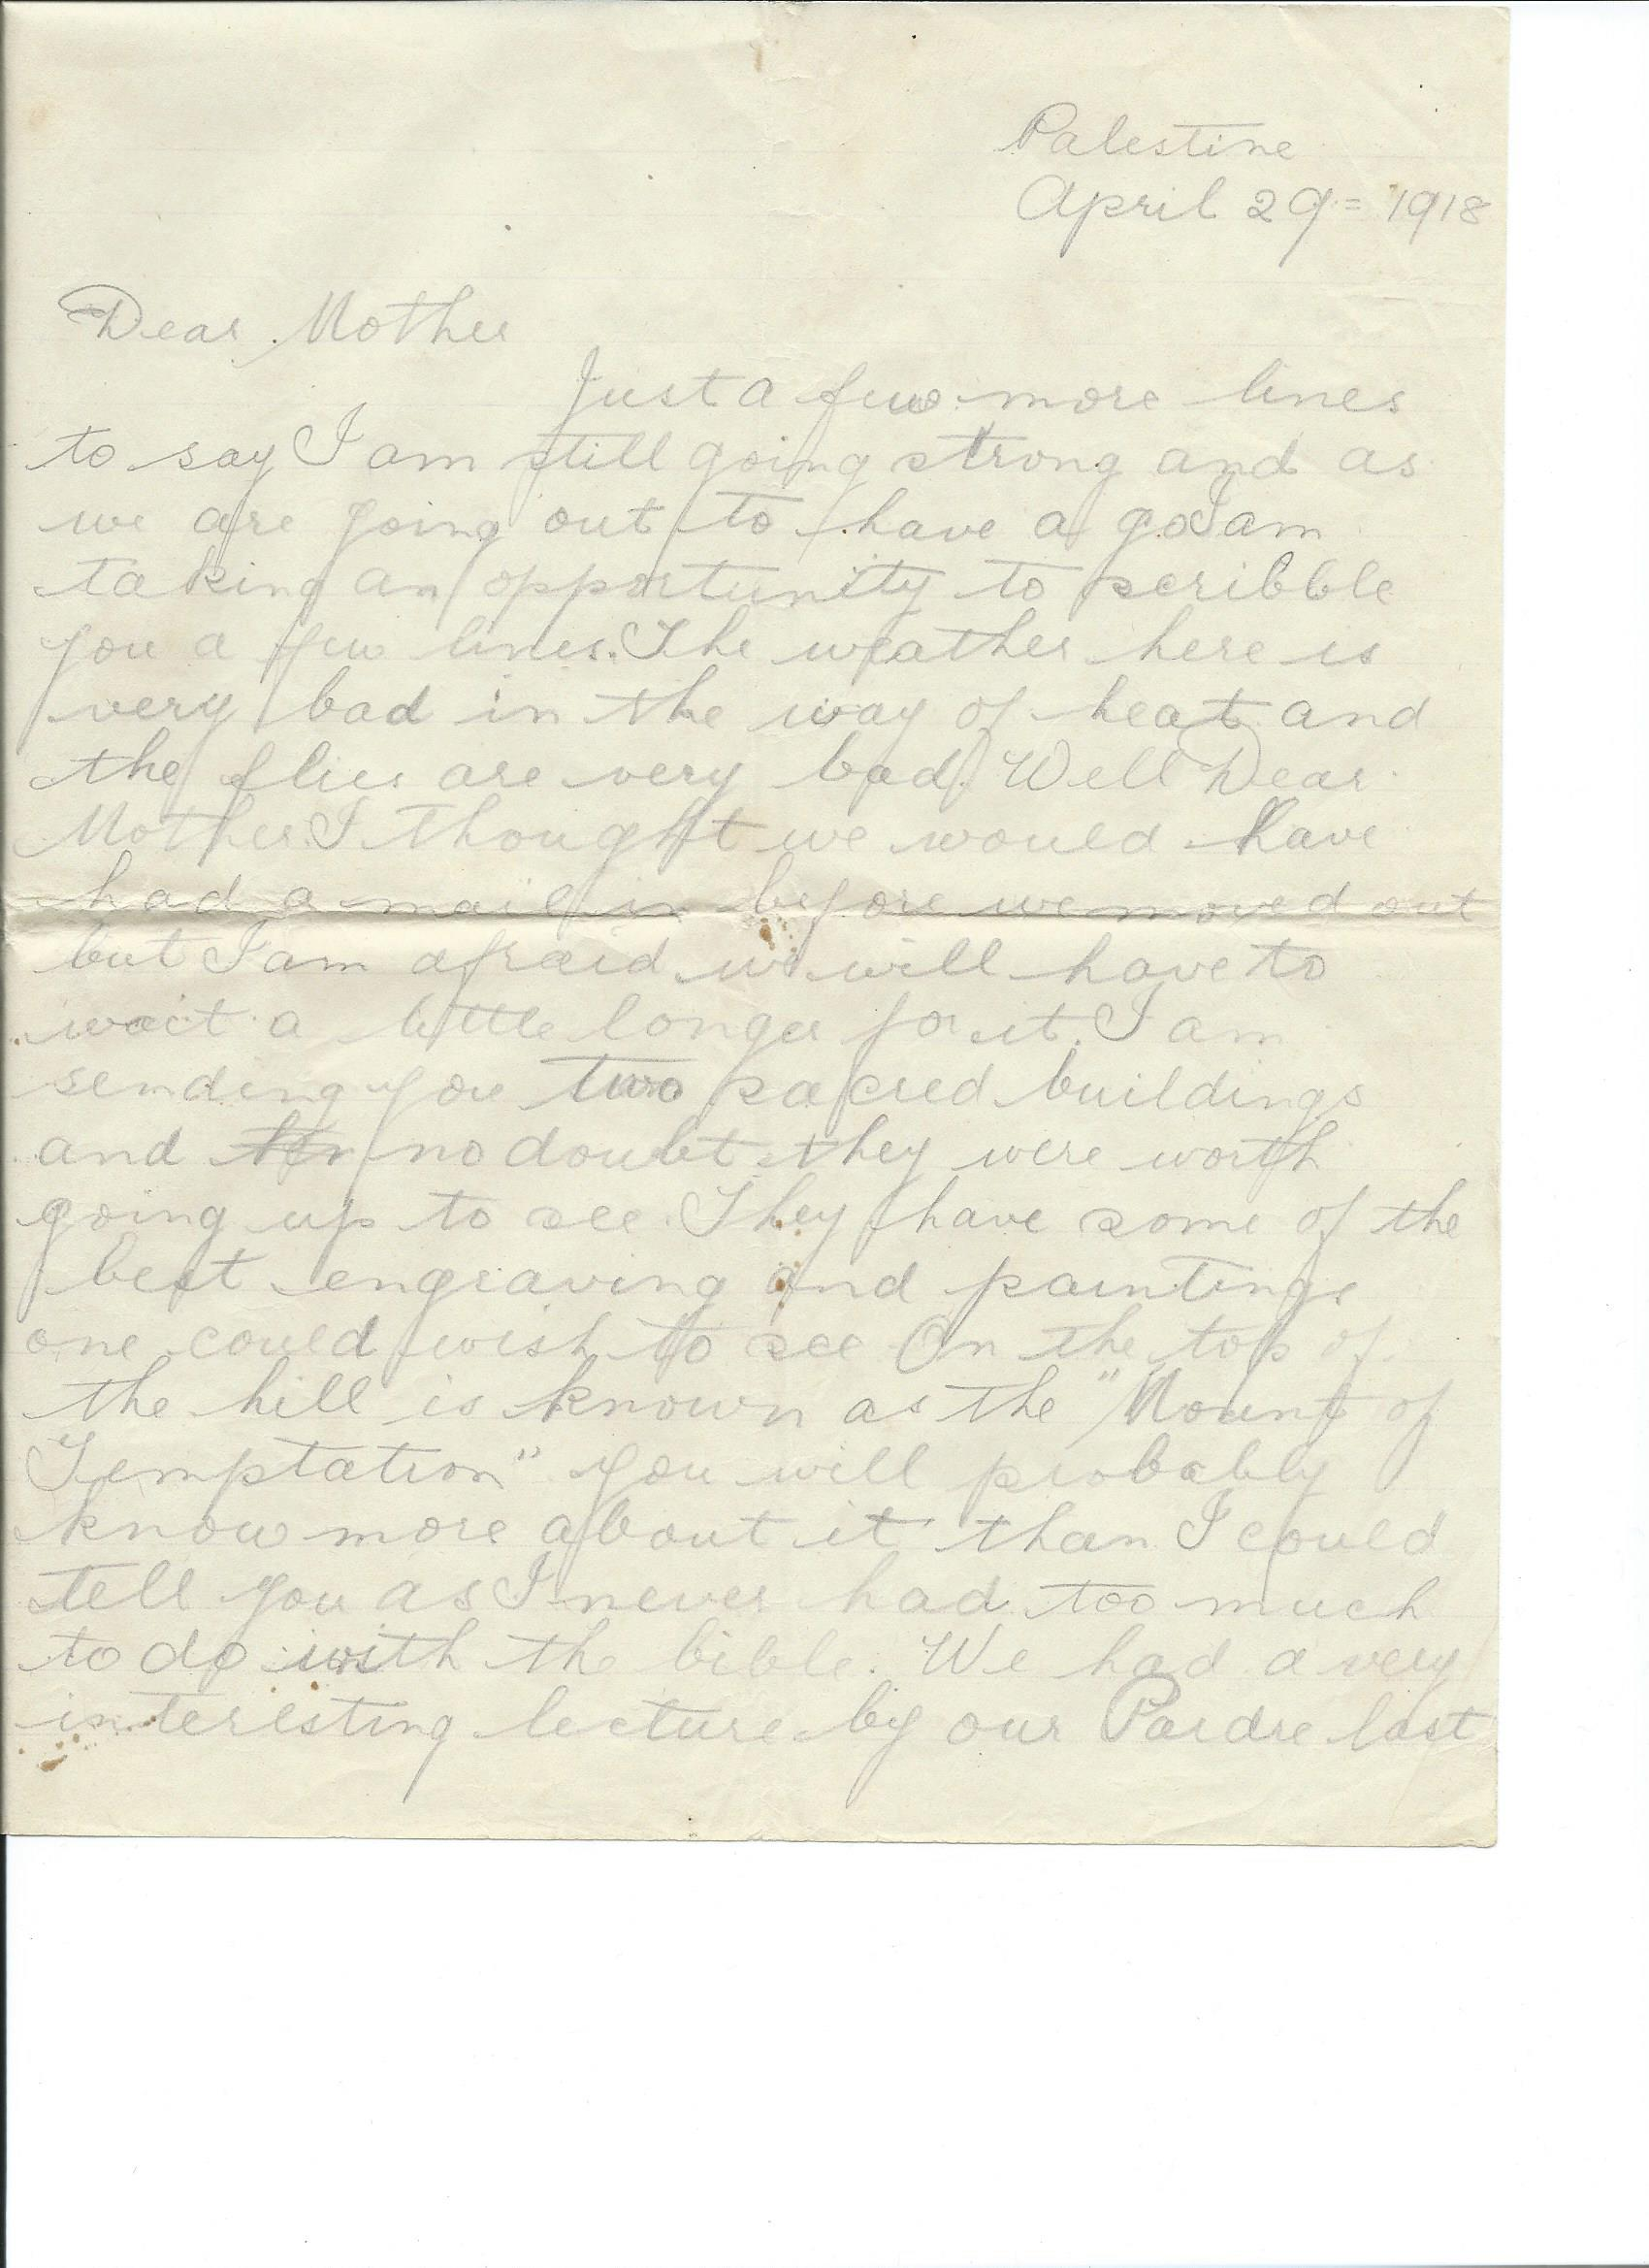 Palestine
April 29= 1918
Dear Mother
Just a few more lines
to say I am still going strong and as
we are going out to have a go I am
taking an opportunity to scribble
you a few lines. The weather here is
very bad in the way of heat and
the flies are very bad. Well Dear
Mother I thought we would have
had a mail in before we moved out
but I am afraid we will have to
wait a little longer for it. I am
sending you two sacred buildings
and no doubt they were worth
going up to see. They have some of the
best engraving and paintings
one could wish to see On the top of
the hill is known as the "Mount of
Temptation" you will probably
know more about it than I could
tell you as I never had too much
to do with the bible. We had a very
interesting lecture by our Pardre last